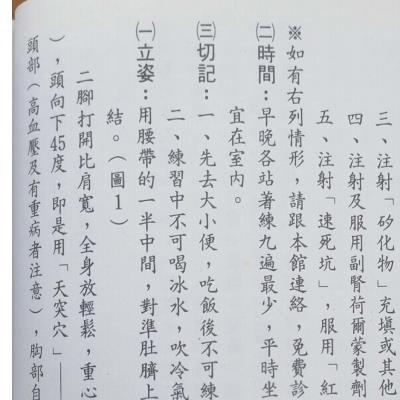 三、注射「矽化物」充填或其他
四、注射及服用副腎荷爾蒙製劑
五、注射「速死坑」，服用「紅
※如有右列情形，請跟本館連絡，免費診
㈡時間：早晚各站著練九遍最少，平時坐
宜在室內。
㈢切記：一、先去大小便，吃飯後不可練
二、練習中不可喝冰水，吹冷氣
㈠立姿：用腰帶的一半中間，對準肚臍上
結。（圖1）
二腳打開比肩寬，全身放輕鬆，重心
），頭向下45度，即是用「天突穴」——
頭部（高血壓及有重病者注意），胸部自